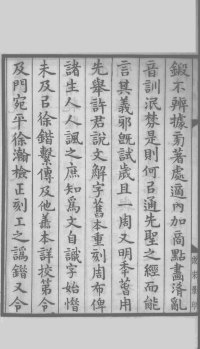 鍛不辨據昜著處適内加商點畫淆亂
音訓泯棼是則何㠯通先聖之經而能
言其義邪旣試歲且一周又明季𦻙用
先舉許君說文解字舊本重刻周布俾
諸生人人諷之庶知爲文自識字始惜
未及㠯徐鍇繫傳及他善本詳校第令
及門宛平徐瀚檢正刻工之譌鍇又令